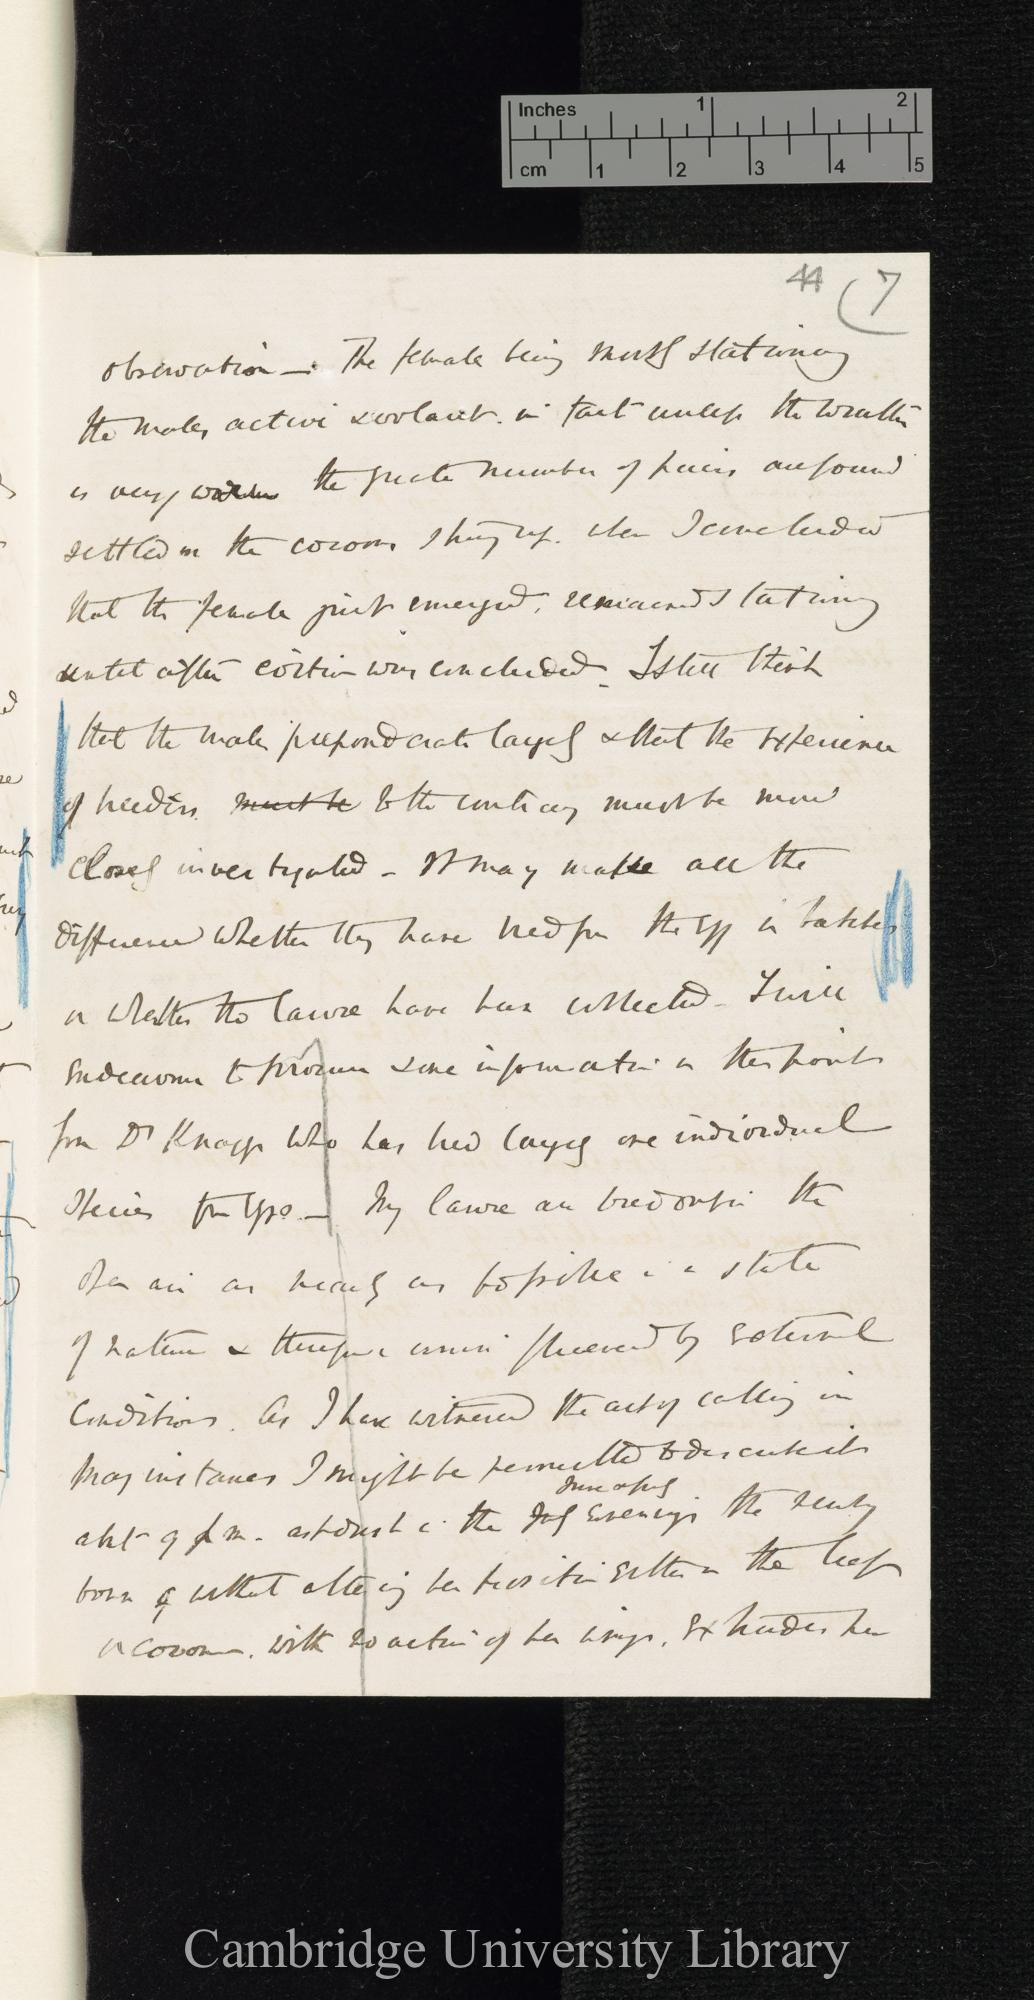 Inches 1 2
cm 1 2 3 4 5
44 7
observation — The female being mostly stationary
the males active & volant. in fact unless the weather
is very warm the greater number of pairs are found
settled on the cocoons & hung up. when I concluded
that the female just emerged, remained stationary
until after coition was concluded – I still think
that the males preponderate largely & that the experience
of breeders must be to the contrary must be more
closely investigated – It may make all the
difference whether they have bred from the egg in batches
or whether the larvæ have been collected – I will
endeavour to procure some information on these points
from Dr Knaggs who has bred largely one individual
species from eggs – My larvæ are bred out in the
open air as nearly as possible in a state
of nature & therefore uninfluenced by external
conditions. As I have witnessed the act of calling in
many instances I might be permitted to describe it
June & July
abt 9 p m. or at dusk in the July Evenings the newly
born ♀ without altering her position either on the leaf
or cocoon. with no action of her wings, extrudes her
Cambridge University Library